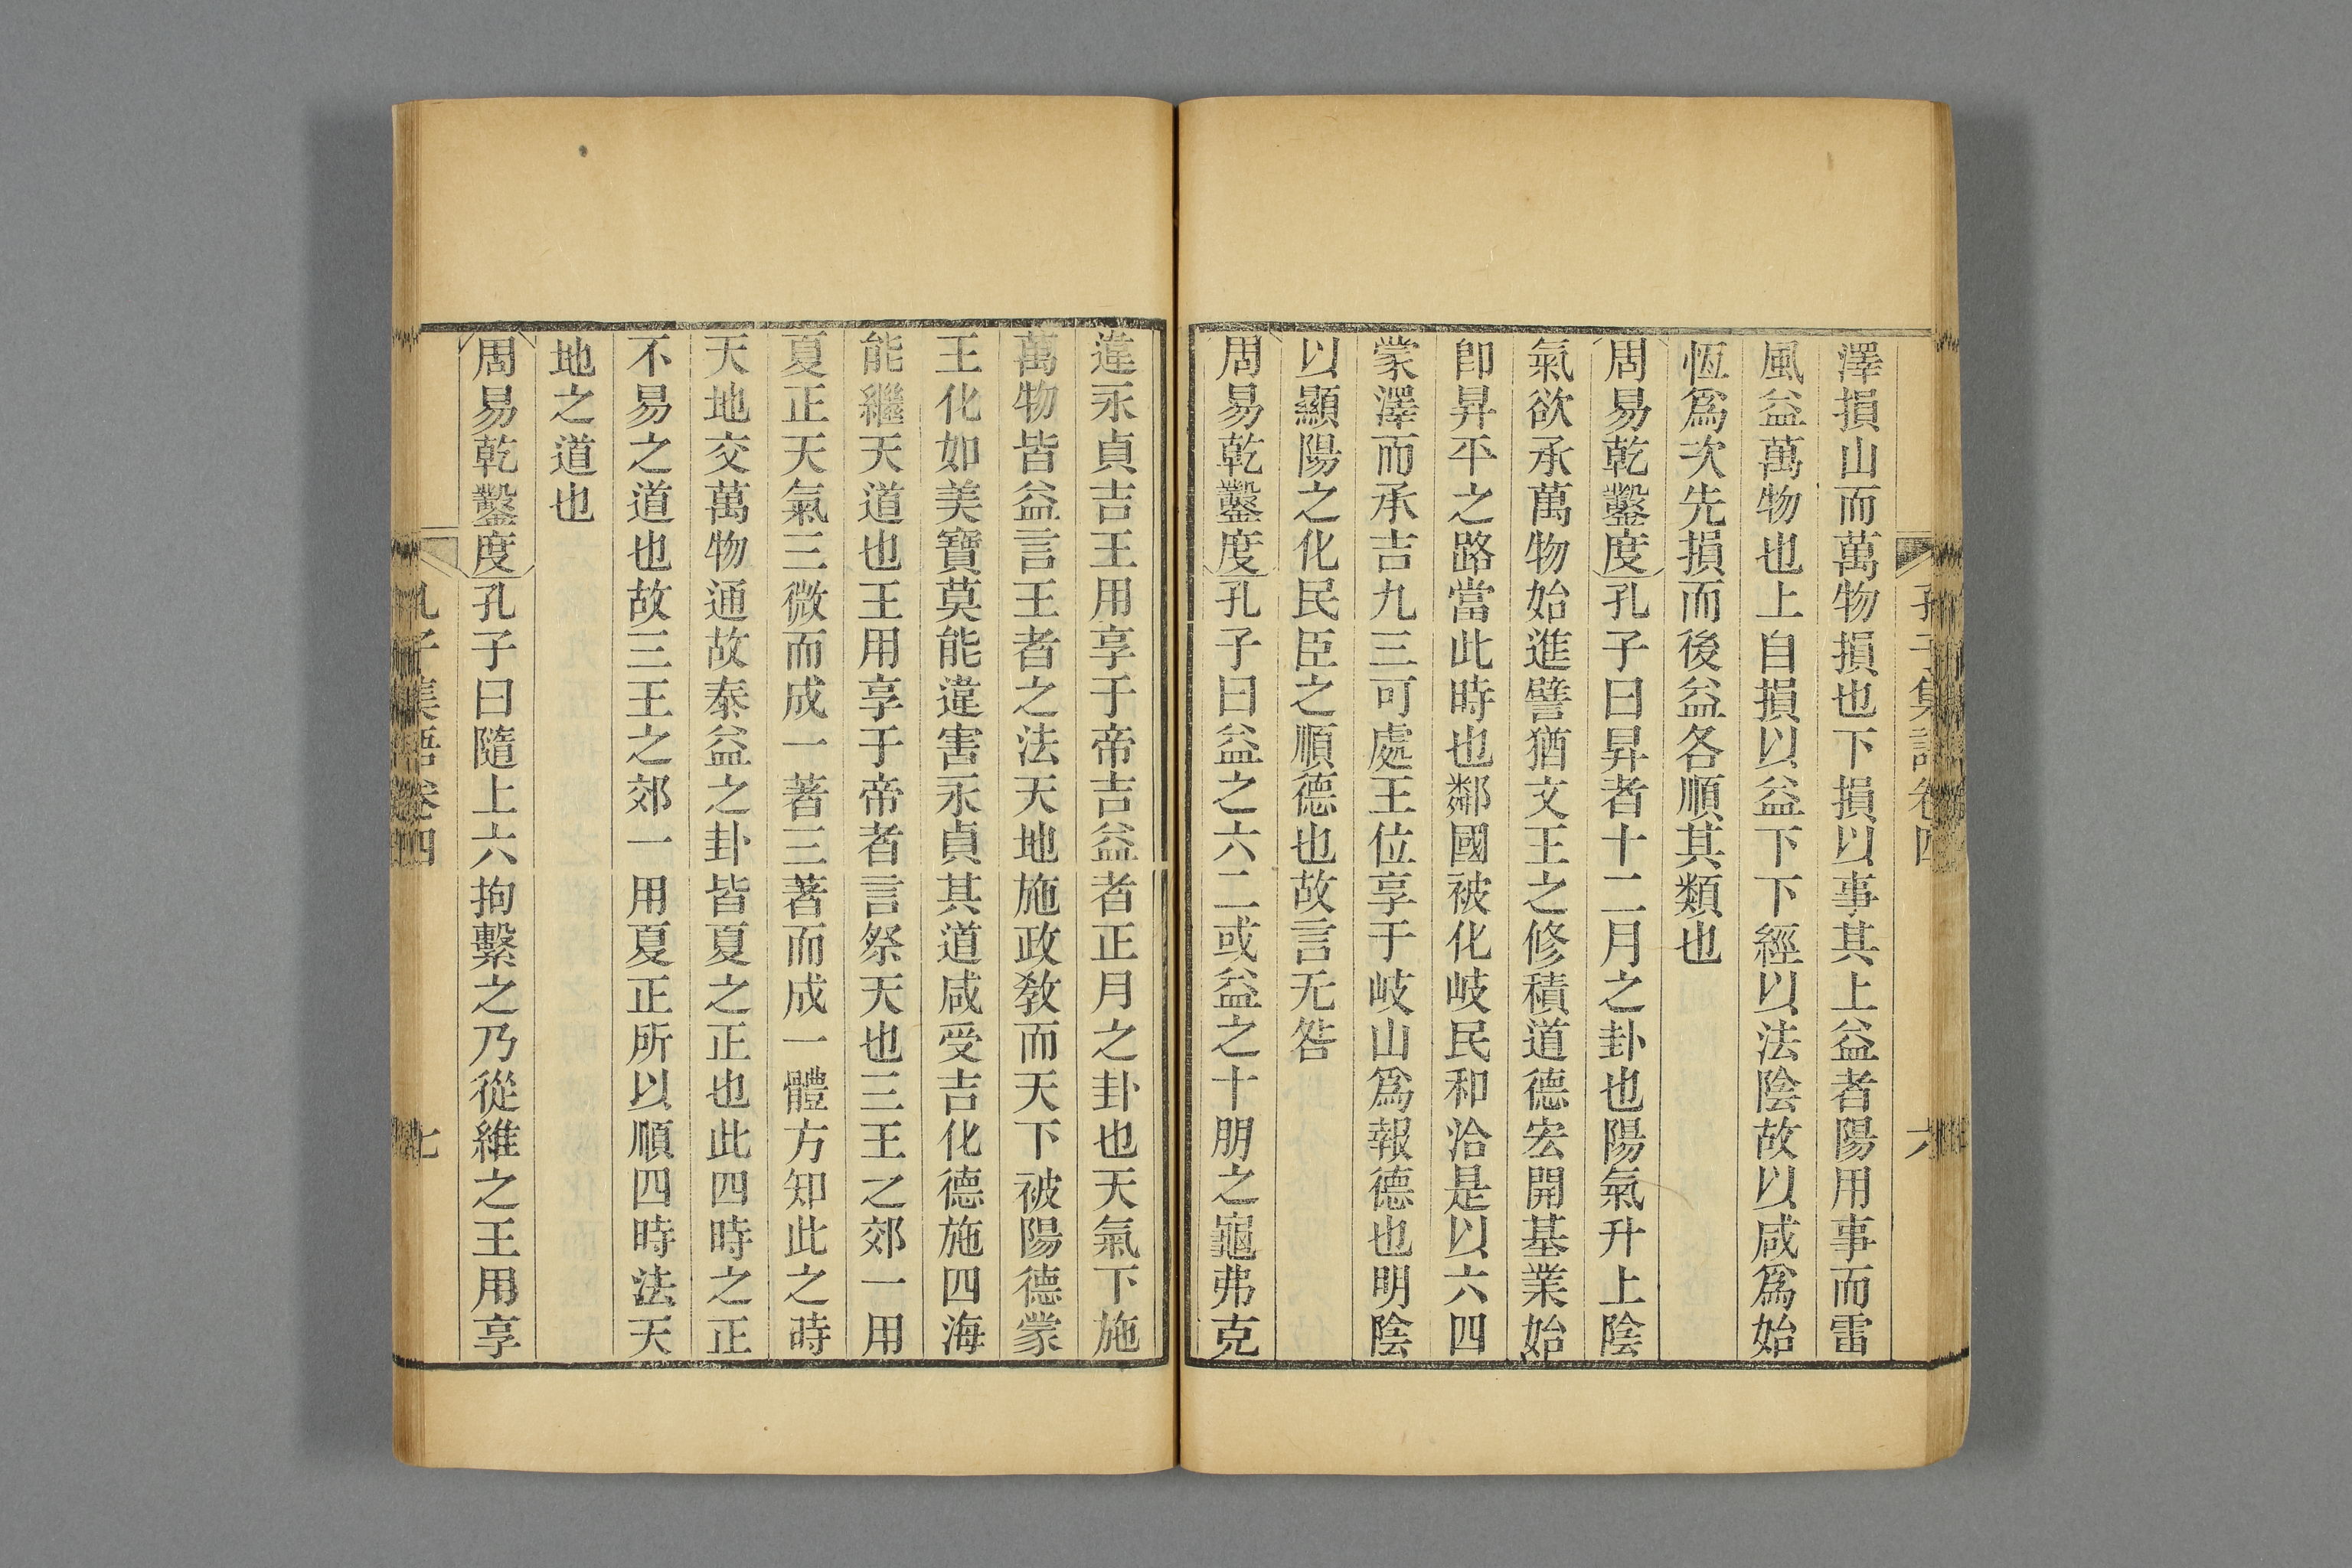 孔子集語卷四
六
澤損山而萬物損也下損以事其上益者陽用事而雷
風益萬物也上自損以益下下經以法陰故以咸爲始
恆爲次先損而後益各順其類也
周易乾鑿度孔子曰昇者十二月之卦也陽氣升上陰
氣欲承萬物始進譬猶文王之修積道德宏開基業始
卽昇平之路當此時也鄰國被化岐民和洽是以六四
蒙澤而承吉九三可處王位享于岐山爲報德也明陰
以顯陽之化民臣之順德也故言无咎
周易乾鑿度孔子曰益之六二或益之十朋之龜弗克
違永貞吉王用享于帝吉益者正月之卦也天氣下施
萬物皆益言王者之法天地施政敎而天下被陽德蒙
王化如美寶莫能違害永貞其道咸受吉化德施四海
能繼天道也王用享于帝者言祭天也三王之郊一用
夏正天氣三微而成一著三著而成一體方知此之時
天地交萬物通故泰益之卦皆夏之正也此四時之正
不易之道也故三王之郊一用夏正所以順四時法天
地之道也
周易乾鑿度孔子曰隨上六拘繫之乃從維之王用享
孔子集語卷四
七